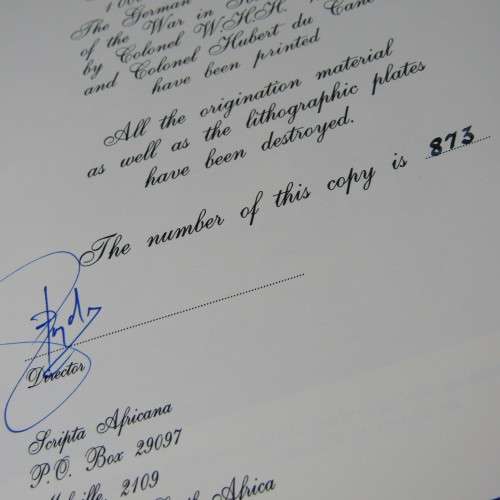 The German
of the War in
by Colonel W.H.H.
and Colonel Hubert du
have been printed
All the origination material
as well as the lithographic plates
have been destroyed.
The number of this copy is 873
Director
Scripta Africana
P.O. Box 29097
Melville, 2109
Africa